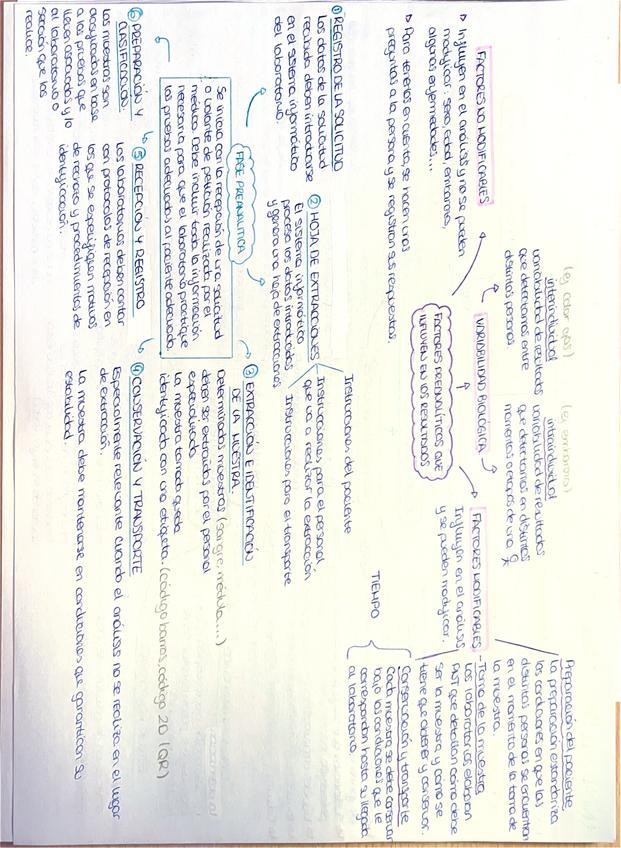 FACTORES PREANALÍTICOS QUE
INFLUYEN EN LOS RESULTADOS
FACTORES NO MODIFICABLES
▹ Influyen en el análisis y no se pueden
modificar: sexo, edad, embarazo,
algunas enfermedades...
▹ Para tenerlos en cuenta, se hacen unas
preguntas a la persona y se registran sus respuestas.
VARIABILIDAD BIOLÓGICA
(ej color ojos)
interindividual
variabilidad de resultados
que detectamos entre
distintas personas.
(ej embarazo)
intraindividual
variabilidad de resultados
que detectamos en distintos
momentos o etapas de una
FACTORES MODIFICABLES
Influyen en el análisis
y se pueden modificar.
Preparación del paciente
la preparación estandariza
las condiciones en que las
distintas personas se encuentran
en el momento de la toma de
la muestra.
- Toma de la muestra
Los laboratorios elaboran
PNT que detallan cómo debe
ser la muestra y como se
tiene que obtener y conservar.
TIEMPO
Conservación y transporte
Cada muestra se debe conservar
bajo las condiciones que le
correspondan hasta su llegada
al laboratorio
FASE PREANALÍTICA
Se inicia con la recepción de una solicitud
o volante de petición realizado por el
médico. Debe incluir toda la información
necesaria para que el laboratorio practique
las pruebas adecuadas al paciente adecuado.
① REGISTRO DE LA SOLICITUD
Los datos de la solicitud
recibida deben introducirse
en el sistema informático
del laboratorio.
② HOJA DE EXTRACCIONES
El sistema informático
procesa los datos introducidos
y genera una hoja de extracciones
Instrucciones del paciente
Instrucciones para el personal
que va a realizar la extracción
Instrucciones para el transporte
③ EXTRACCIÓN E IDENTIFICACIÓN
DE LA MUESTRA.
Determinadas muestras (sangre, médula...)
deben ser extraídas por el personal
especializado.
La muestra tomada queda
identificada con una etiqueta. (código barras, código 2D (QR)
④ CONSERVACIÓN Y TRANSPORTE
Especialmente relevante cuando el análisis no se realiza en el lugar
de extracción.
La muestra debe mantenerse en condiciones que garanticen su
estabilidad.
⑤ RECEPCIÓN Y REGISTRO
Los laboratorios deben contar
con protocolos de recepción en
los que se especifiquen motivos
de rechazo y procedimientos de
identificación.
⑥ PREPARACIÓN Y
CLASIFICACIÓN.
Las muestras son
clasificadas en base
a las pruebas que
lleven asociadas y/o
al laboratorio o
sección que las
realice.